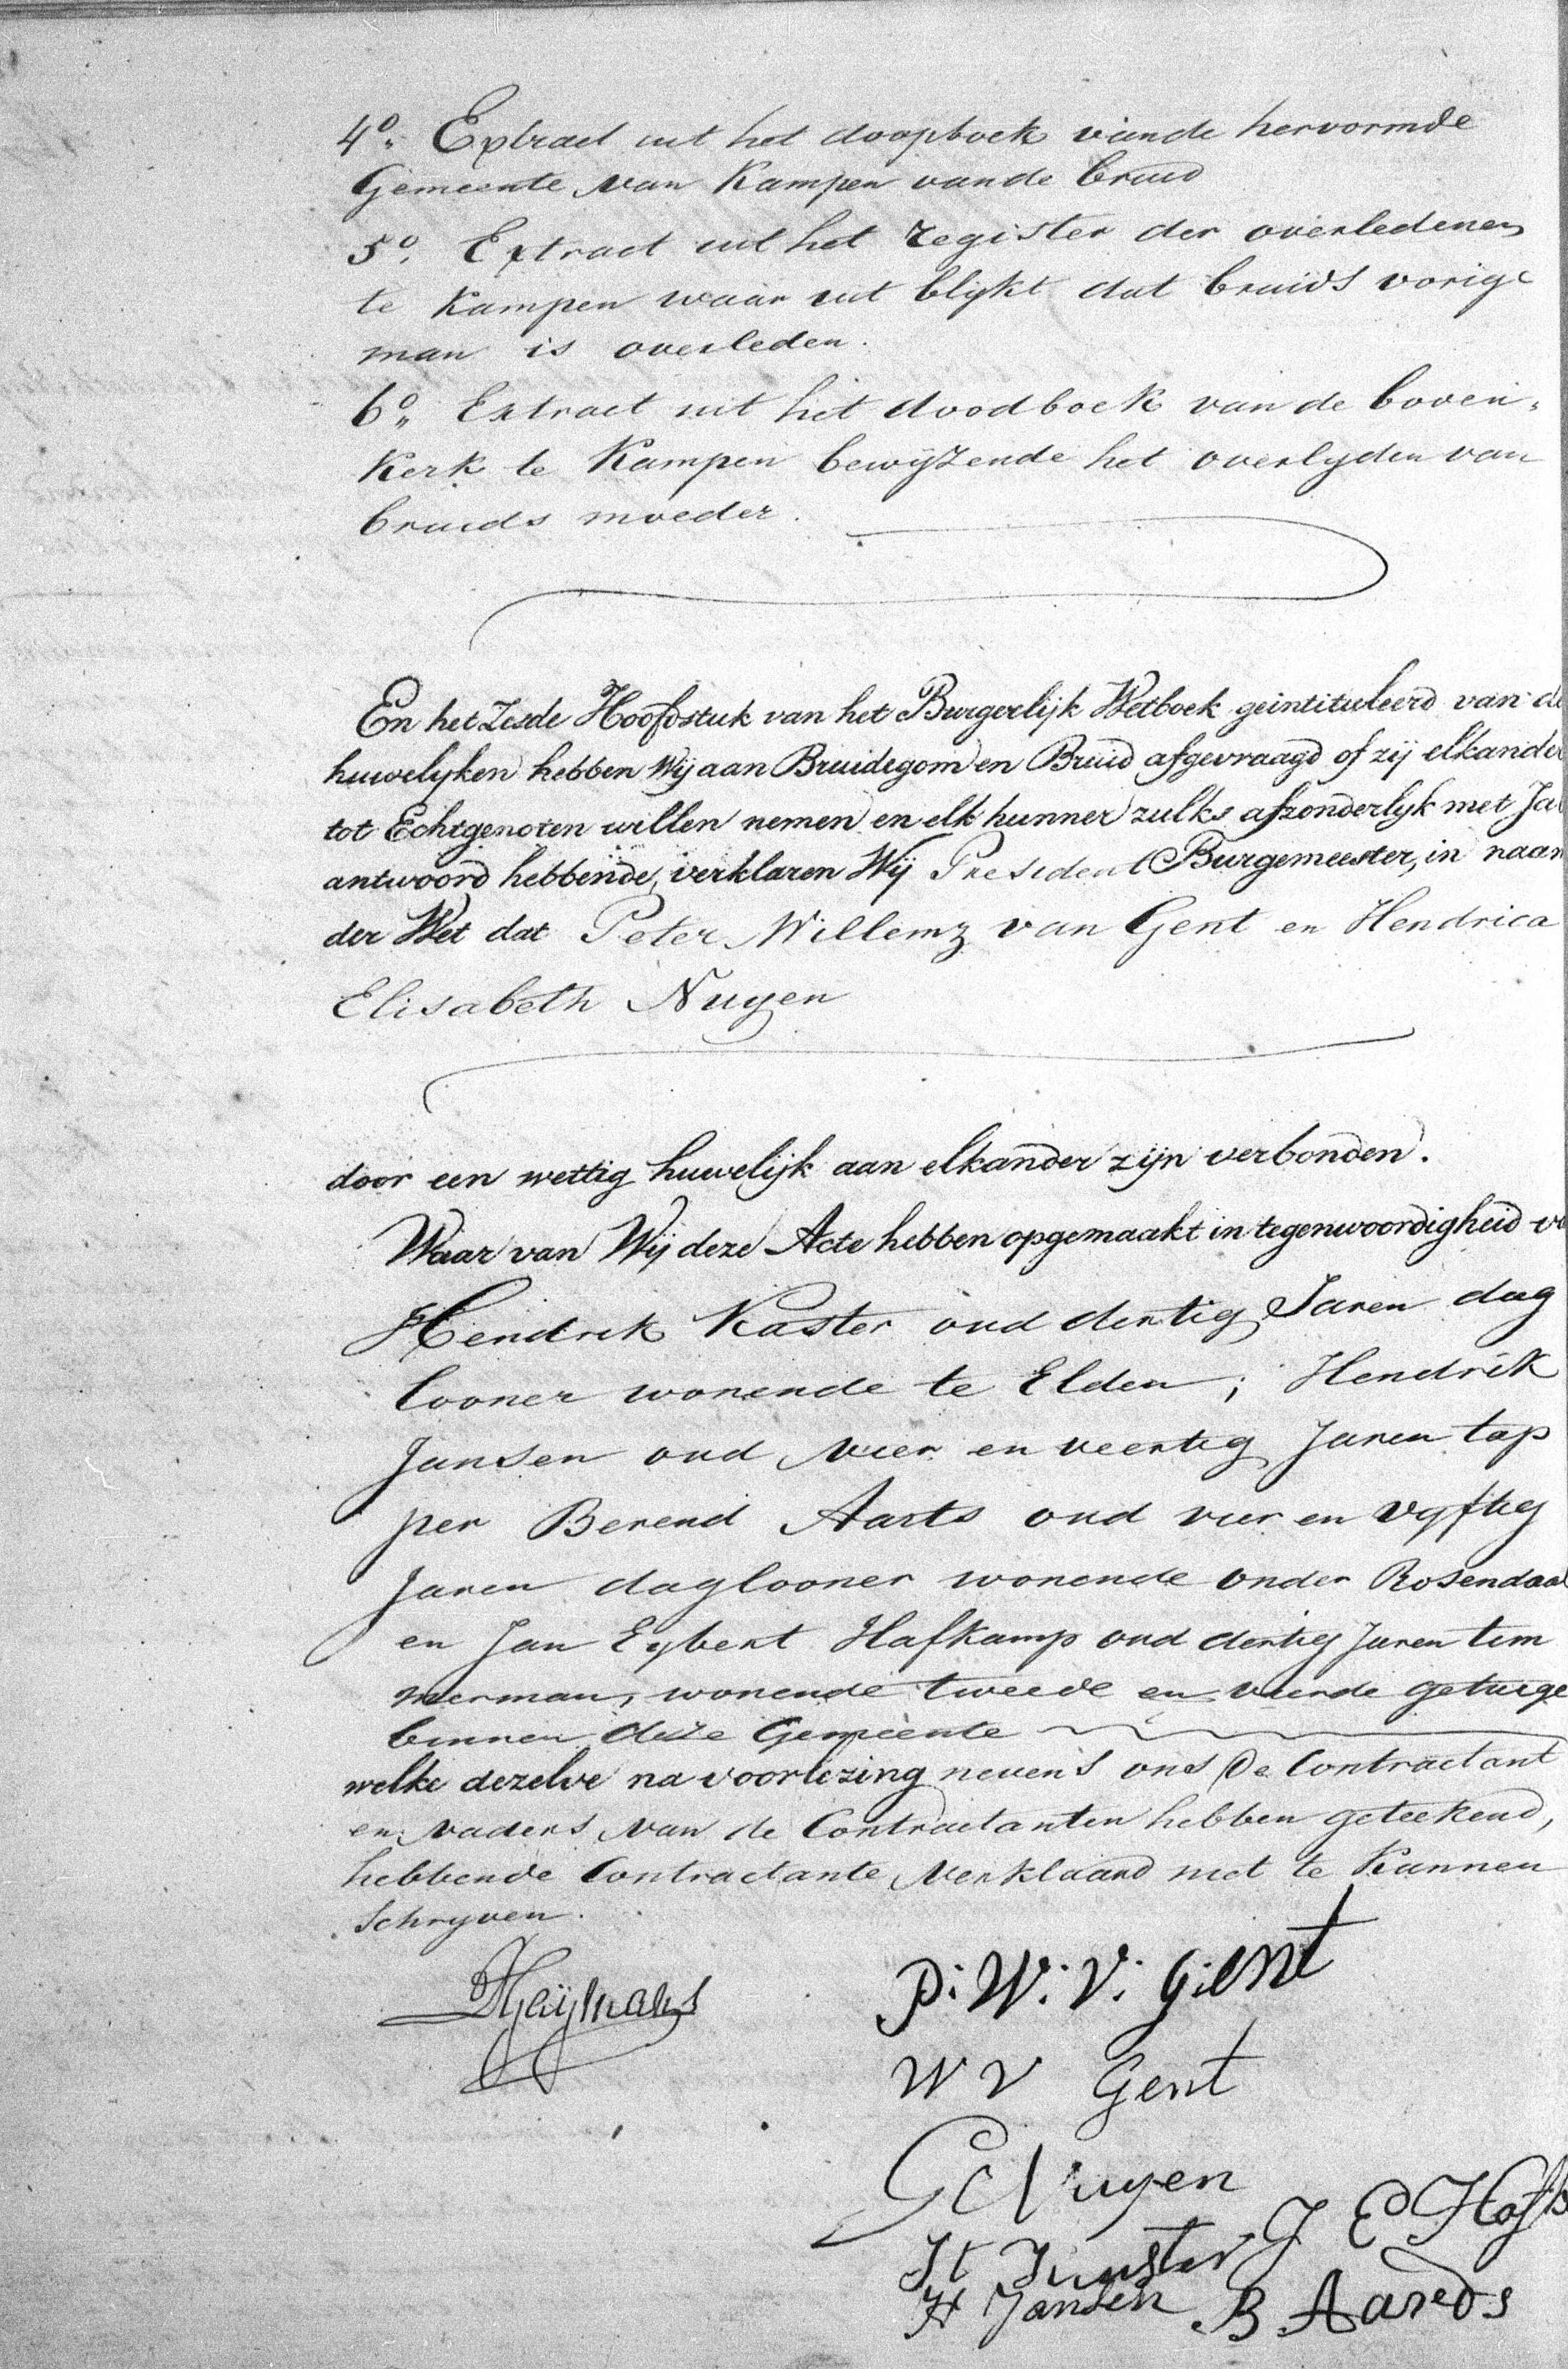 4o. Extract uit het doopboek vande hervormde
Gemeente van Kampen vande bruid
5o. Extract uit het register der overledenen
te Kampen waar uit blykt dat bruids vorige
man is overleden.
6o. Extract uit het doodboek van de boven-
Kerk te Kampen bewyzende het overlyden van
bruids moeder.
En het Zesde Hoofdstuk van het Burgerlijk Wetboek geintituleerd van de
huwelyken hebben Wij aan Bruidegom en Bruid afgevraagd of zij elkander
tot Echtgenoten willen nemen en elk hunner zulks afzonderlyk met Ja
antwoord hebbende, verklaren Wij President Burgemeester, in naam
der Wet dat Peter Willemz van Gent en Hendrica
Elisabeth Nuyen
door een wettig huwelijk aan elkander zijn verbonden.
Waar van Wij deze Acte hebben opgemaakt in tegenwoordigheid va
Hendrik Kaster oud dertig Jaren dag
looner wonende te Elden; Hendrik
Jansen oud vier en veertig Jaren tap
per Berend Aarts oud vier en vyftig
Jaren daglooner wonende onder Rosendaal
en Jan Egbert Hafkamp oud dertig Jaren tim
merman, wonende tweede en vierde getuige
binnen deze Gemeente
welke dezelve na voorlezing nevens ons de Contractant
en vaders van de Contractanten hebben geteekend,
hebbende Contractante verklaard niet te Kunnen
Schryven.
P: W: V: Gent
W V Gent
G Nuyen
J E Hofk
H Jansen B Aareds